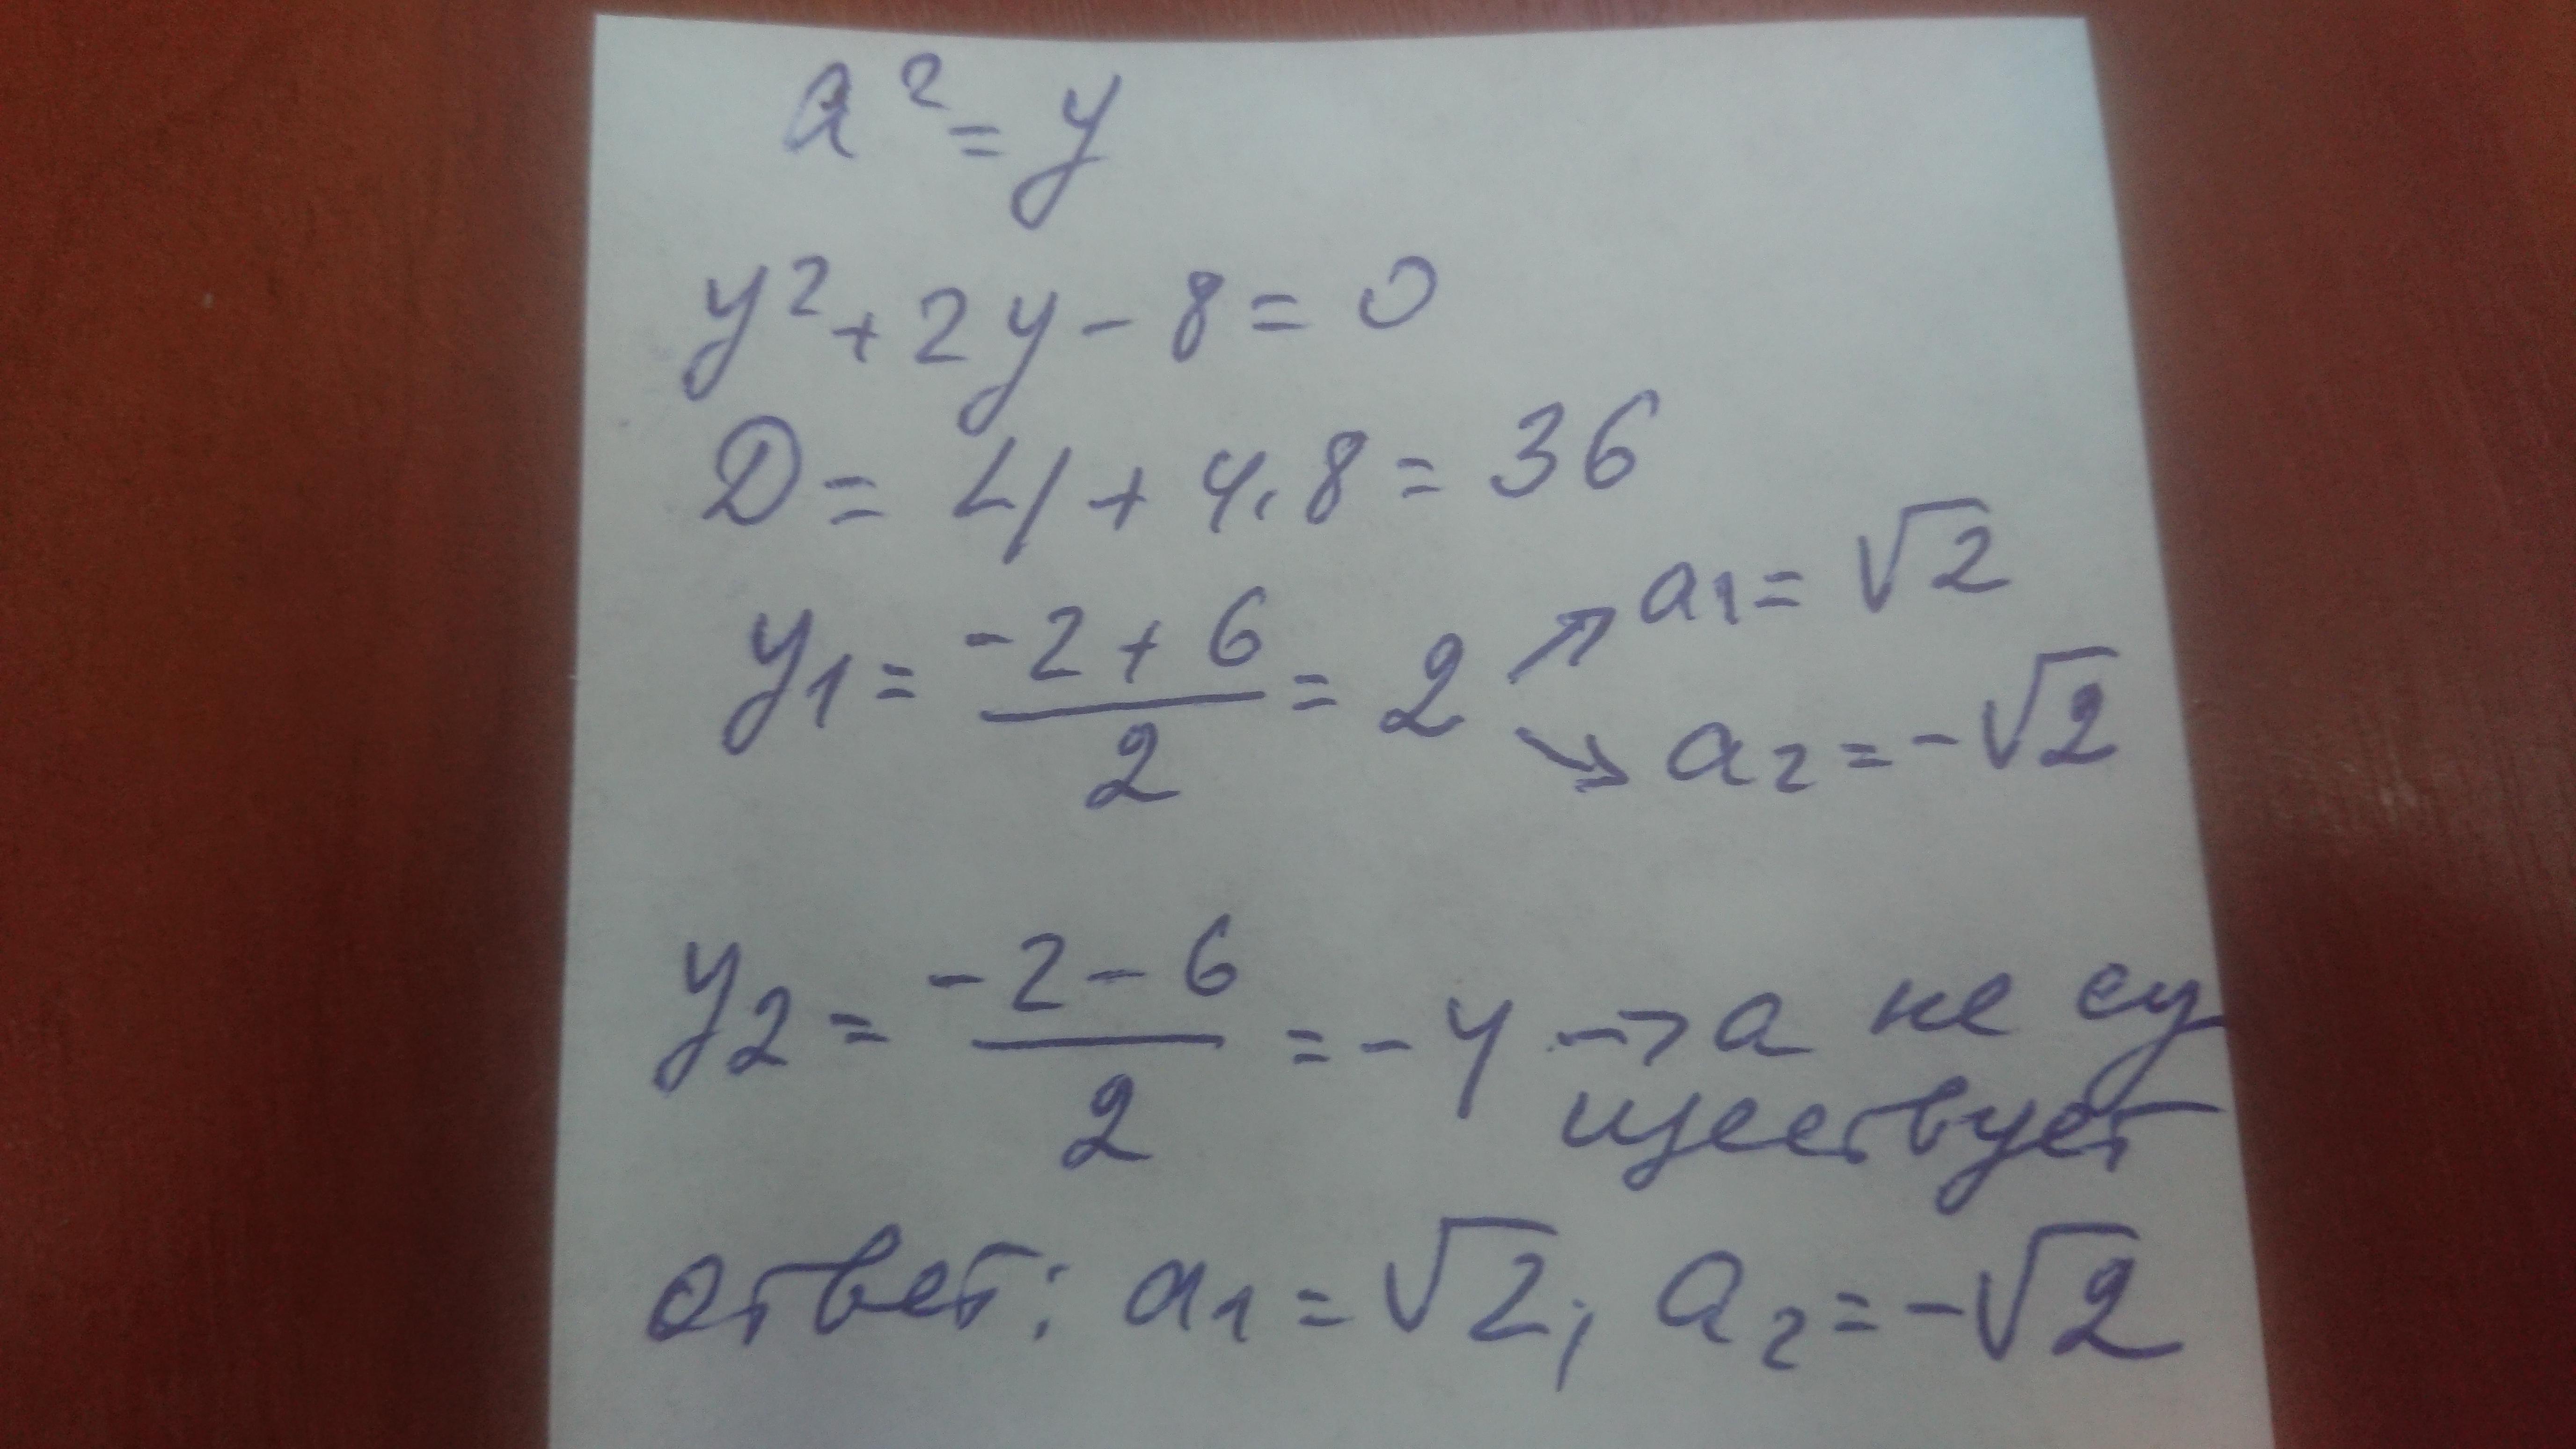 a² = y
y² + 2y - 8 = 0
D = 4 + 4·8 = 36
y₁ = (-2 + 6)/2 = 2 ↗ a₁ = √2
↘ a₂ = -√2
y₂ = (-2 - 6)/2 = -4 → a не су
ществует
ответ: a₁ = √2; a₂ = -√2